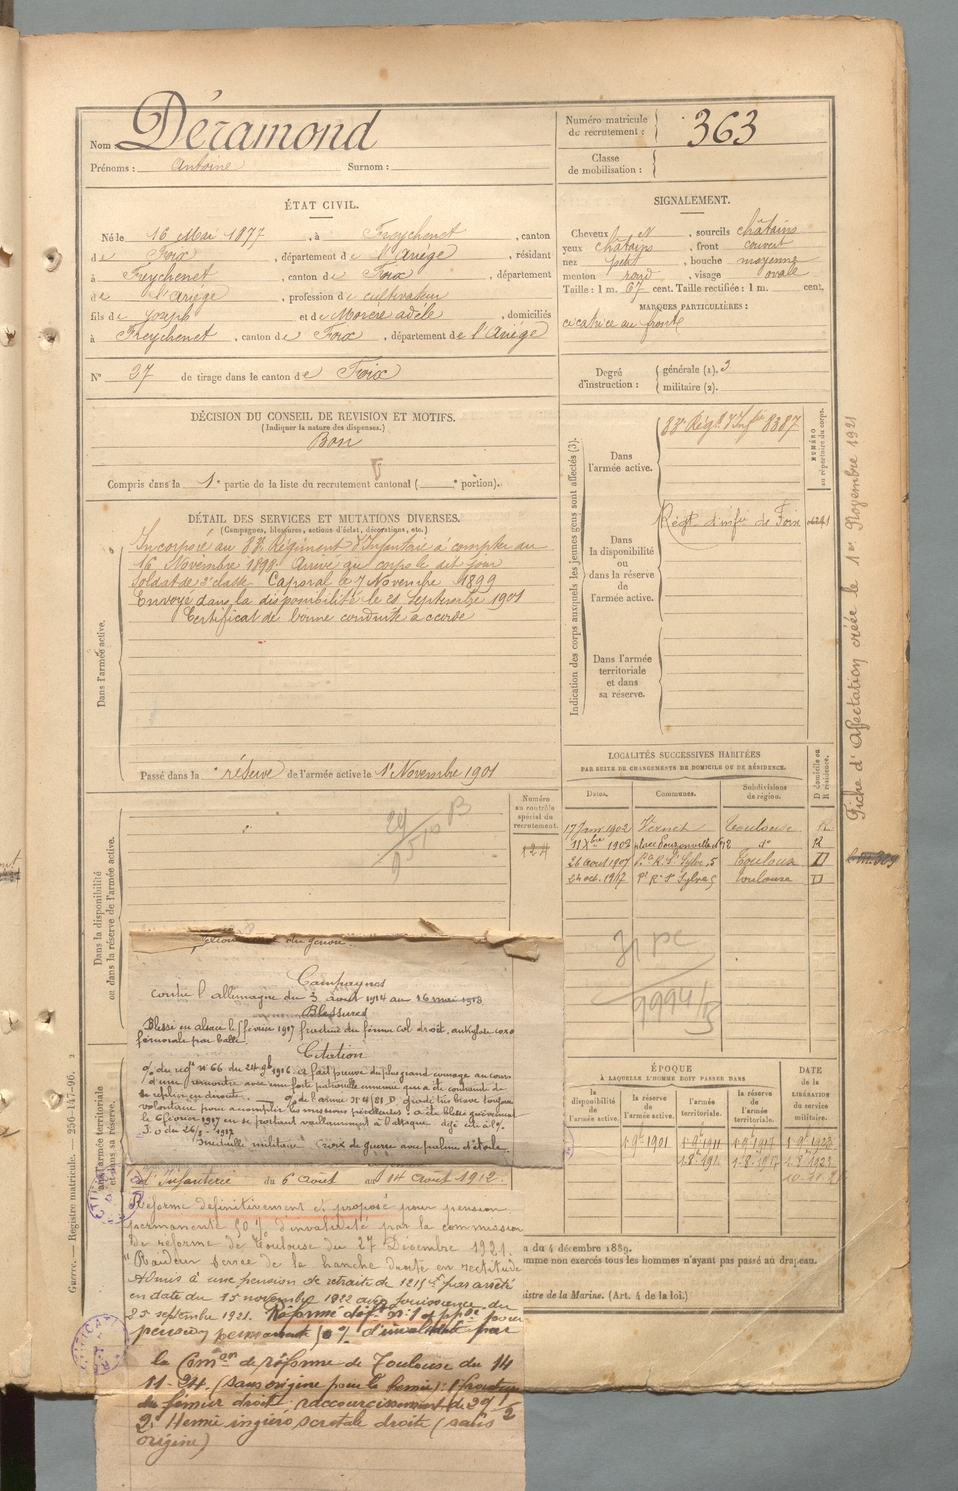 Nom : Déramond
Prénoms : Antoine Surnom :
Numéro matricule de recrutement : 363
Classe de mobilisation :
ÉTAT CIVIL.
Né le 16 Mai 1877, à Freychenet, canton
de Foix, département de l'Ariége, résidant
à Freychenet, canton de Foix, département
de l'Ariége, profession de cultivateur
fils de Joseph et de Morere adèle, domiciliés
à Freychenet, canton de Foix, département de l'Ariége
N° 37 de tirage dans le canton de Foix
SIGNALEMENT.
Cheveux et N, sourcils châtains
yeux châtains, front couvert
nez petit, bouche moyenne
menton rond, visage ovale
Taille : 1 m. 67 cent. Taille rectifiée : 1 m. cent.
MARQUES PARTICULIÈRES :
cicatrice au front
Degré d'instruction : générale (1). 3
militaire (2).
DÉCISION DU CONSEIL DE REVISION ET MOTIFS.
(Indiquer la nature des dispenses.)
Bon
Compris dans la 1e partie de la liste du recrutement cantonal ( e portion).
DÉTAIL DES SERVICES ET MUTATIONS DIVERSES.
(Campagnes, blessures, actions d'éclat, décorations, etc.)
Dans l'armée active.
Incorporé au 83e Régiment d'Infanterie à compter du
16 Novembre 1898. Arrivé au corps le dit jour
Soldat de 2e classe. Caporal le 7 Novembre 1899
Envoyé dans la disponibilité le 21 Septembre 1901
Certificat de bonne conduite accordé
Passé dans la réserve de l'armée active le 1er Novembre 1901
Indication des corps auxquels les jeunes gens sont affectés (3).
NUMÉRO au répertoire du corps.
Dans l'armée active.
83e Régt d'Infie 8387
Dans la disponibilité ou dans la réserve de l'armée active.
Régt d'infie de Foix
Dans l'armée territoriale et dans sa réserve.
Fiche d'Affectation créée le 1er Novembre 1921
LOCALITÉS SUCCESSIVES HABITÉES
PAR SUITE DE CHANGEMENTS DE DOMICILE OU DE RÉSIDENCE.
Dates. Communes. Subdivisions de région. D domicile ou R résidence.
17 Janv 1902 Vernet Toulouse R
11 Xbre 1903 place R
26 août 1907 Toulouse D
24 oct. 1912 Toulouse D
Dans la disponibilité ou dans la réserve de l'armée active.
Numéro au contrôle spécial du recrutement.
124
Campagnes
Contre l'allemagne du 3 août 1914 au 16 mai 1918
Blessures
Blessé en alsace le février 1917 fracture du fémur col droit,
fémorale par balle.
Citation
du regt n° 66 du 24 9b 1916 a fait preuve du plus grand courage au cours
d'une rencontre avec une forte patrouille ennemie qui a été contrainte de
se replier en désordre. de l'armée très brave toujours
volontaire pour accomplir les missions périlleuses a été blessé grièvement
le 6 février 1917 en se portant vaillamment à l'attaque. déjà cité à l'
J.O du 26
médaille militaire Croix de guerre avec palme d'étoile.
ÉPOQUE
À LAQUELLE L'HOMME DOIT PASSER DANS
DATE de la LIBÉRATION du service militaire.
la disponibilité de l'armée active.
la réserve de l'armée active.
l'armée territoriale.
la réserve de l'armée territoriale.
d'Infanterie du 6 août au 14 août 1912.
Réformé définitivement et proposé pour pension
permanente 80 % d'invalidité par la commission
de réforme de Toulouse du 27 Décembre 1921.
Raideur serrée de la hanche droite en rectitude
Admis à une pension de retraite de 1215 f par arrêté
en date du 15 novembre 1922 avec jouissance du
25 septembre 1921. Réformé déft n° 1 et ppsé pour
pension permanente % d'invalidité par
la Comon de réforme de Toulouse du 14
11-24. (sans origine pour la hernie) : 1° fracture
du fémur droit ; raccourcissement de
2° Hernie inguino scrotale droite (sans
origine)
du 4 décembre 1889.
omme non exercés tous les hommes n'ayant pas passé au drapeau.
istre de la Marine. (Art. 4 de la loi.)
Guerre. — Registre matricule. — 256-147-96.